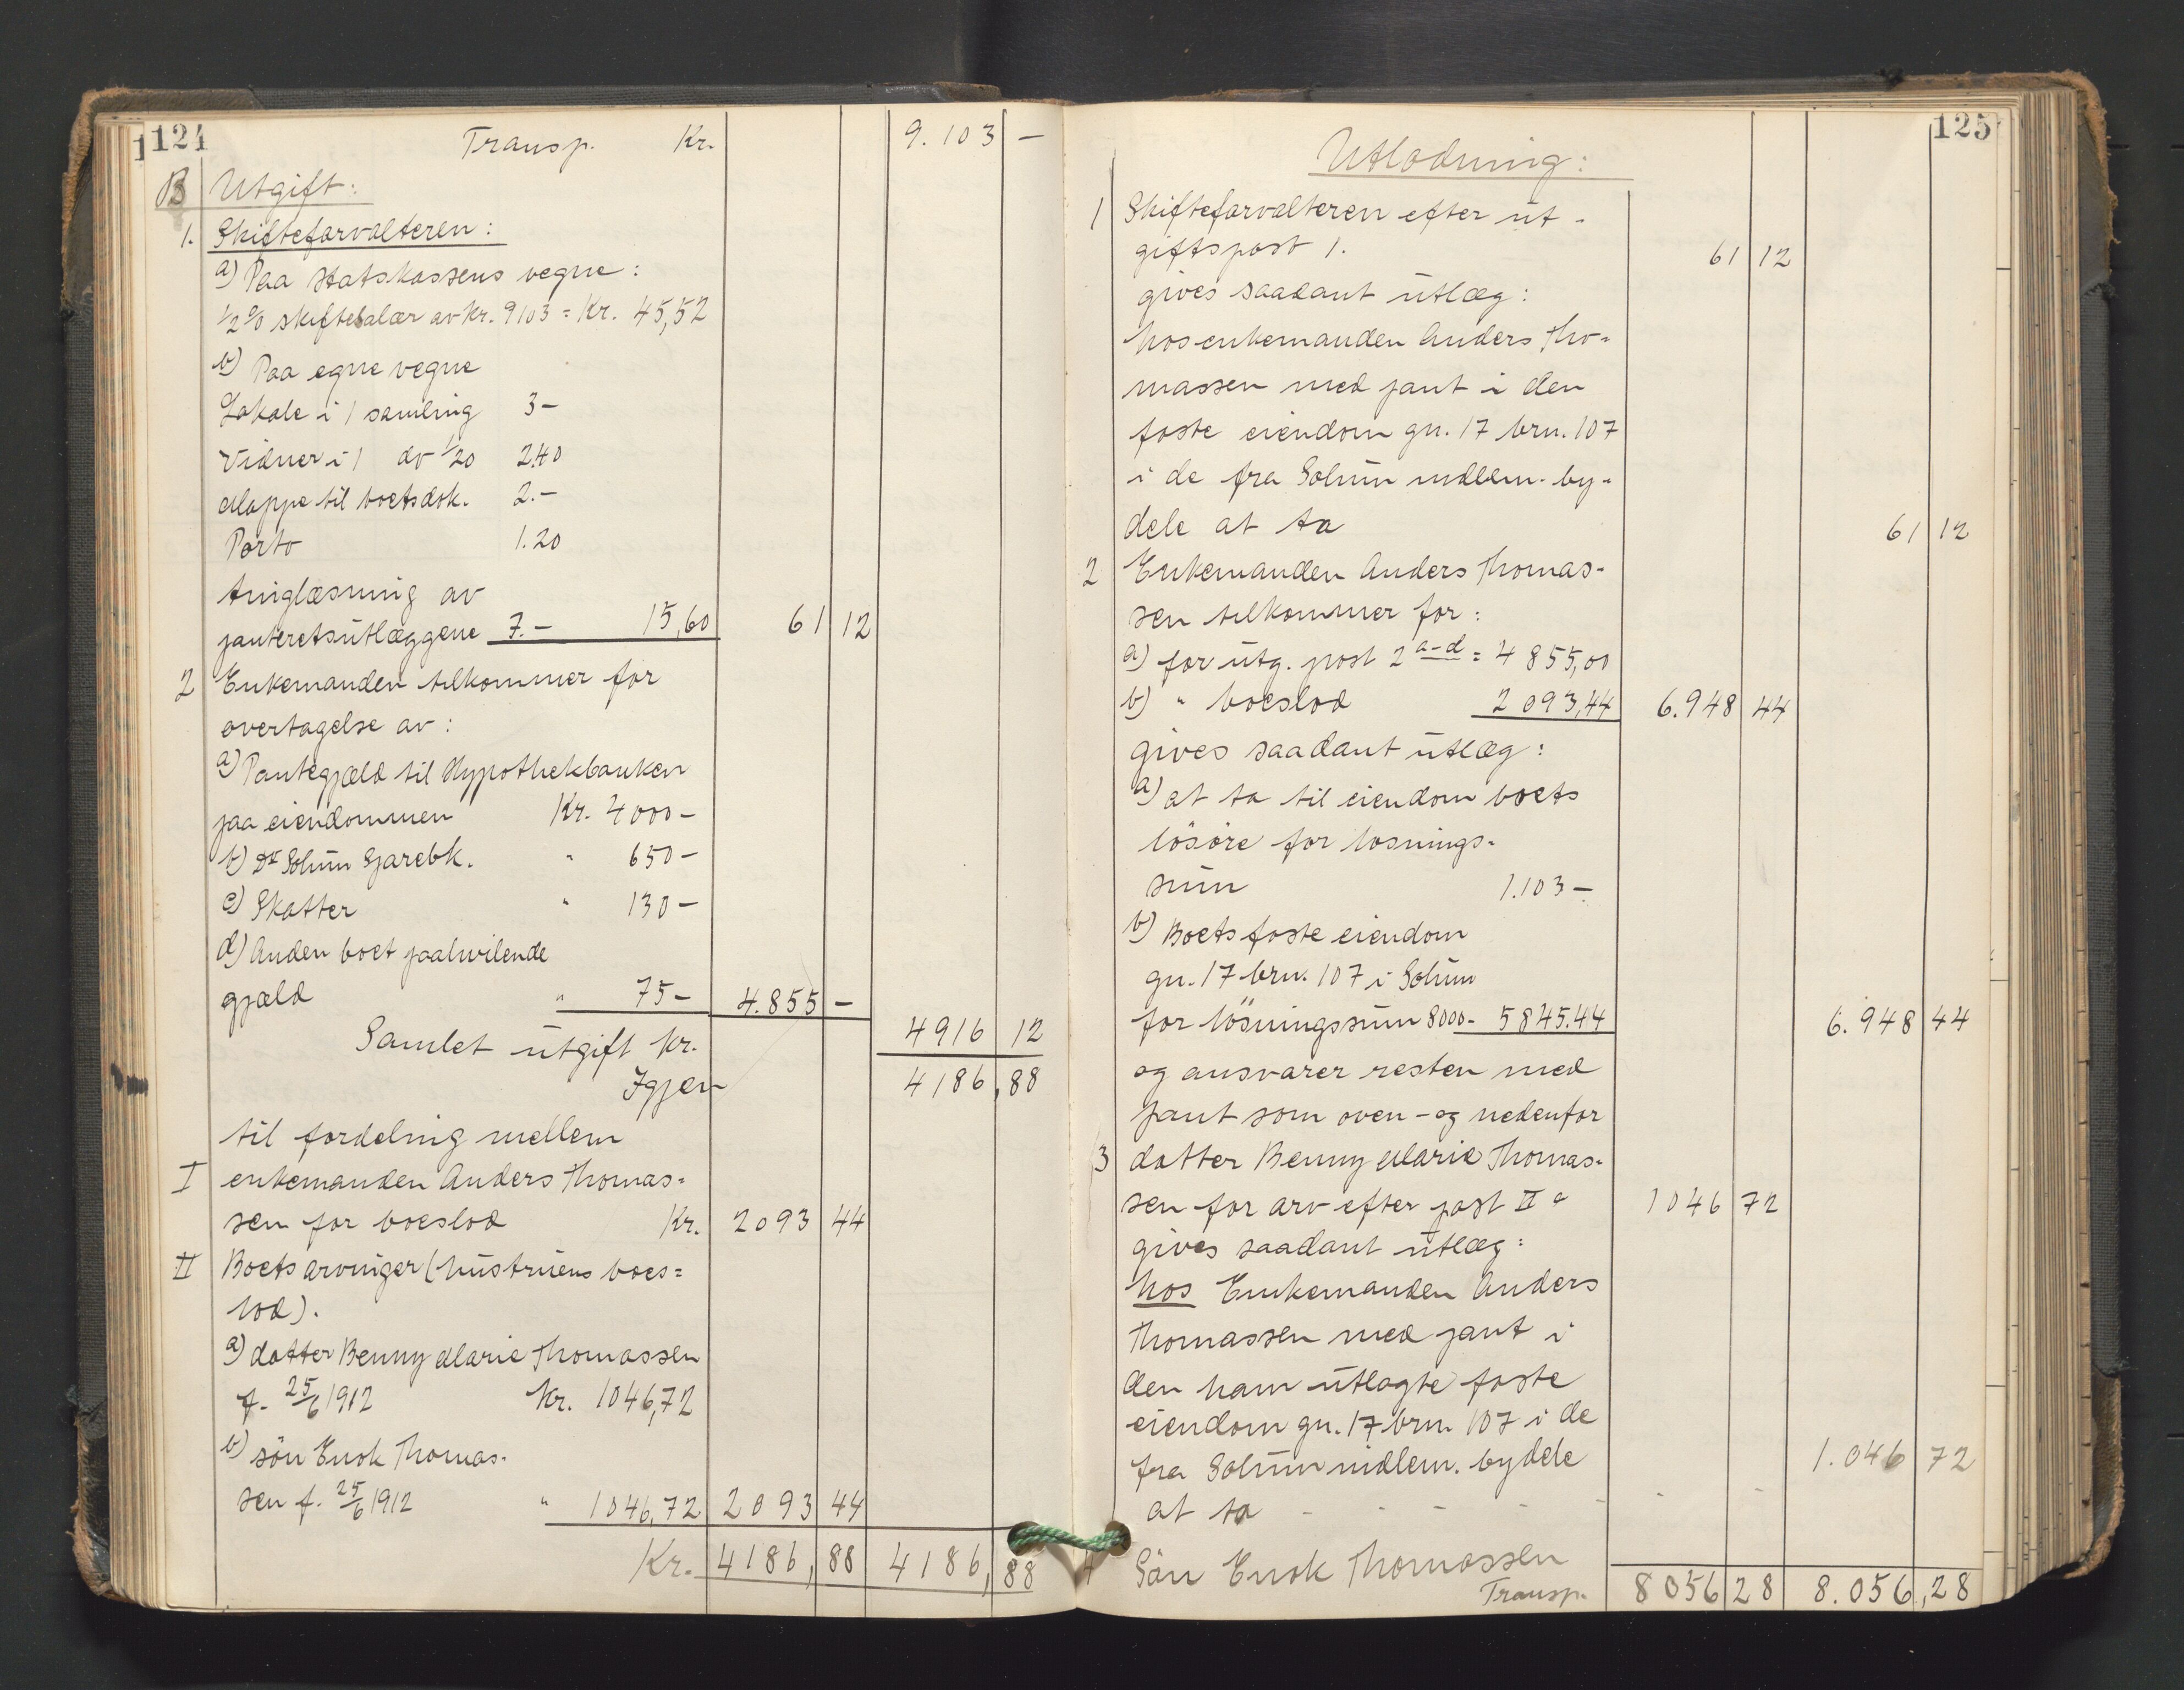 124
Transp. Kr. 9.103 –
B Utgift:
1. Skifteforvalteren:
a) Paa statskassens vegne:
1/2 % skiftesalær av kr. 9103 = Kr. 45,52
b) Paa egne vegne
Lokale i 1 samling 3 –
Vidner i 1 dv 1/20 2.40
Mappe til boets dok. 2. –
Porto 1.20
tinglæsning av
panteretsutlæggene 7. – 15,60 61 12
2 Enkemanden tilkommer for
overtagelse av:
a) Pantegjæld til Hypothekbanken
paa eiendommen Kr. 4000 –
b) Do Solum Sparebk. " 650 –
c) Skatter " 130 –
d) Anden boet paahvilende
gjæld " 75 – 4.855 –
Samlet utgift kr. 4916 12
Igjen 4186,88
til fordeling mellem
I enkemanden Anders Thomas-
sen for boeslod Kr. 2093 44
II Boets arvinger (hustruens boes-
lod).
a) datter Benny Marie Thomassen
f. 25/6 1912 Kr. 1046,72
b) søn Enok Thomas-
sen f. 25/6 1912 " 1046,72 2093 44
Kr. 4186,88 4186,88
125
Utlodning:
1 Skifteforvalteren efter ut-
giftspost 1. 61 12
gives saadant utlæg:
hos enkemanden Anders Tho-
massen med pant i den
faste eiendom gn. 17 brn. 107
i de fra Solum indlem. by-
dele at ta 61 12
2 Enkemanden Anders Thomas-
sen tilkommer for:
a) for utg. post 2 a-d = 4855,00
b) " boeslod 2093,44 6.948 44
gives saadant utlæg:
a) at ta til eiendom boets
løsøre for løsnings-
sum 1.103 –
b) Boets faste eiendom
gn. 17 brn. 107 i Solum
for løsningssum 8000 - 5845.44 6.948 44
og ansvarer resten med
pant som oven- og nedenfor
3 datter Benny Marie Thomas-
sen for arv efter post II a 1046 72
gives saadant utlæg:
hos Enkemanden Anders
Thomassen med pant i
den ham utlagte faste
eiendom gn. 17 brn. 107 i de
fra Solum indlem. bydele 1.046 72
at ta - - - - - - -
4 Søn Enok Thomassen
Transp. 8056 28 8.056,28